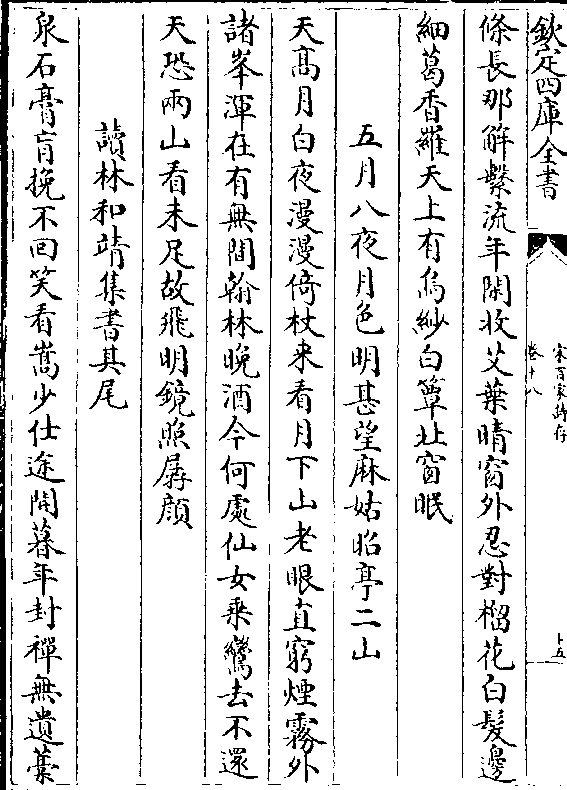 欽定四庫全書
宋百家詩存
卷十八
十五
條長那解繫流年閑收艾葉晴窗外忍對榴花白髮邊
細葛香羅天上有烏紗白簟北窗眠
五月八夜月色明甚望麻姑昭亭二山
天髙月白夜漫漫倚杖来看月下山老眼直窮煙霧外
諸峯渾在有無間翰林晚酒今何處仙女乗鸞去不還
天恐兩山看未足故飛明鏡照孱顔
讀林和靖集書其尾
泉石膏肓挽不回笑看嵩少仕途開暮年封禪無遺藁